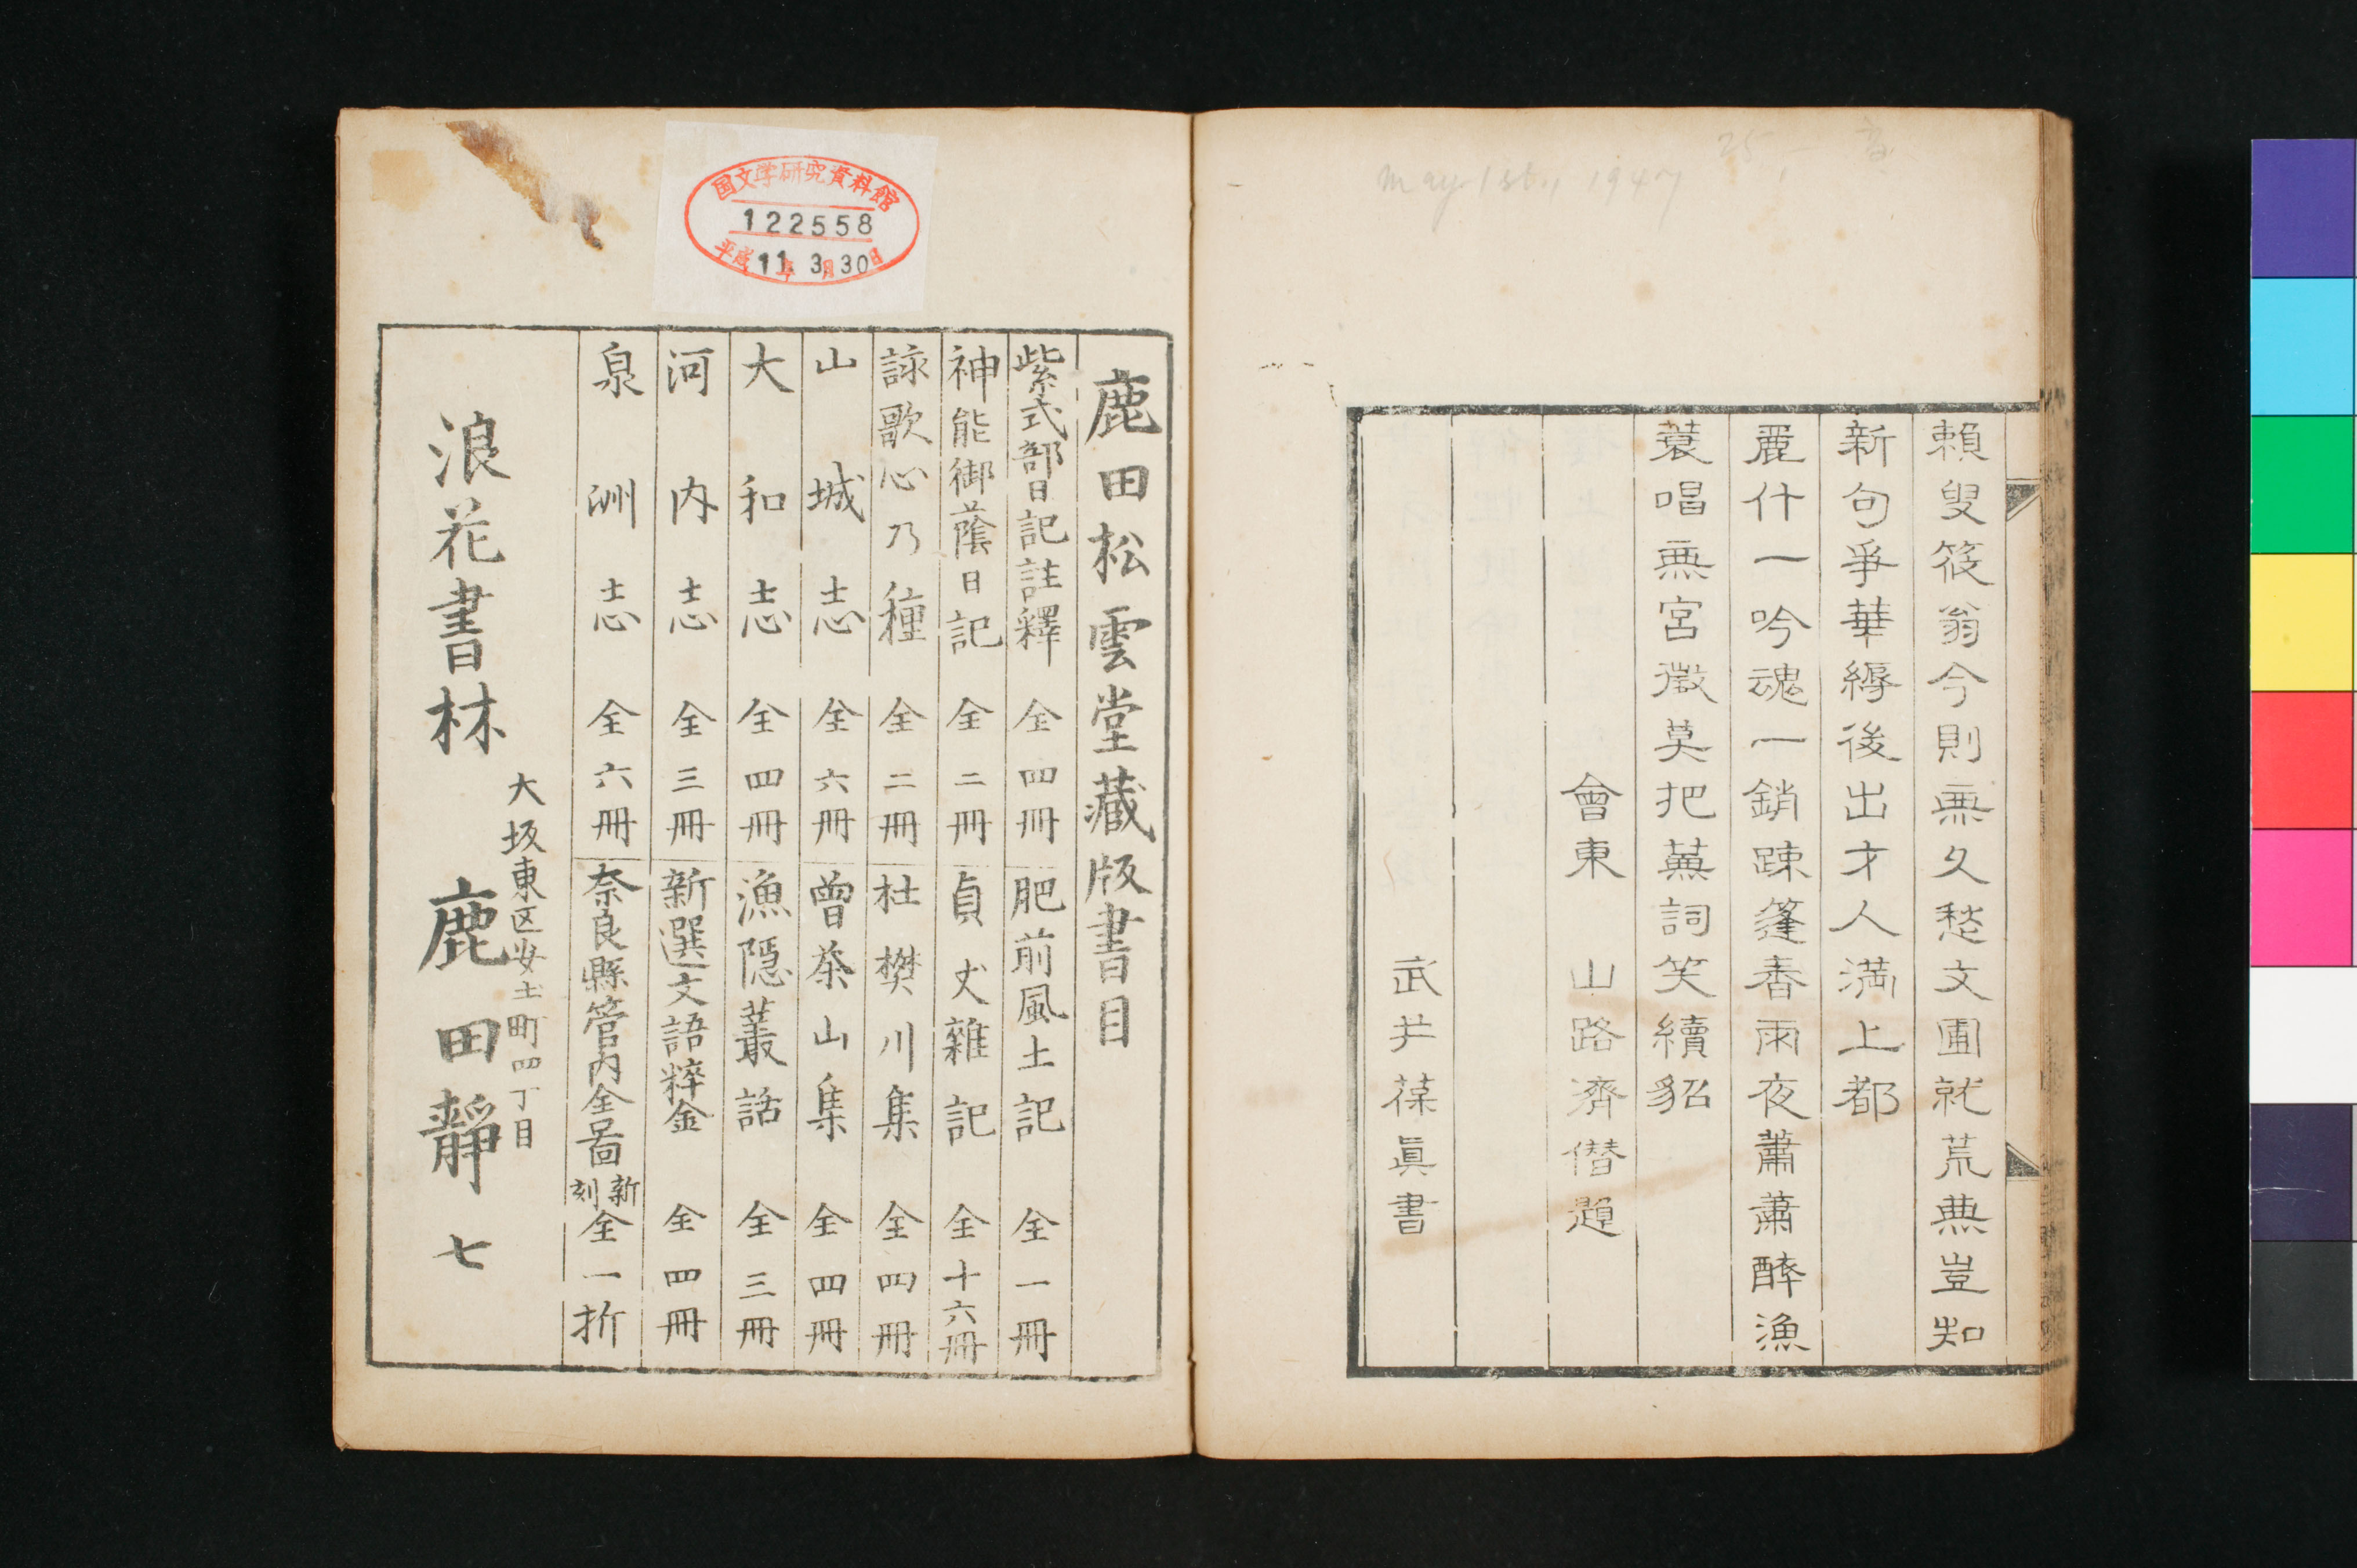 May 1st., 1947
25,-
賴叟筱翁今則無久愁文圃就荒蕪豈知
新句爭華縟後出才人満上都
麗什一吟魂一銷疎篷春雨夜蕭蕭醉漁
蓑唱無宮徵莫把蕪詞笑續貂
會東 山路濟僭題
武井葆眞書
国文学研究資料館
122558
平成11年3月30日
鹿田松雲堂藏版書目
紫式部日記註釋 全四冊 肥前風土記 全一冊
神能御蔭日記 全二冊 貞丈雜記 全十六冊
詠歌心乃種 全二冊 杜樊川集 全四冊
山城志 全六冊 曾茶山集 全四冊
大和志 全四冊 漁隱叢話 全三冊
河内志 全三冊 新選文語粹金 全四冊
泉洲志 全六冊 奈良縣管内全啚 新刻 全一折
大坂東区安土町四丁目
浪花書林 鹿田靜七